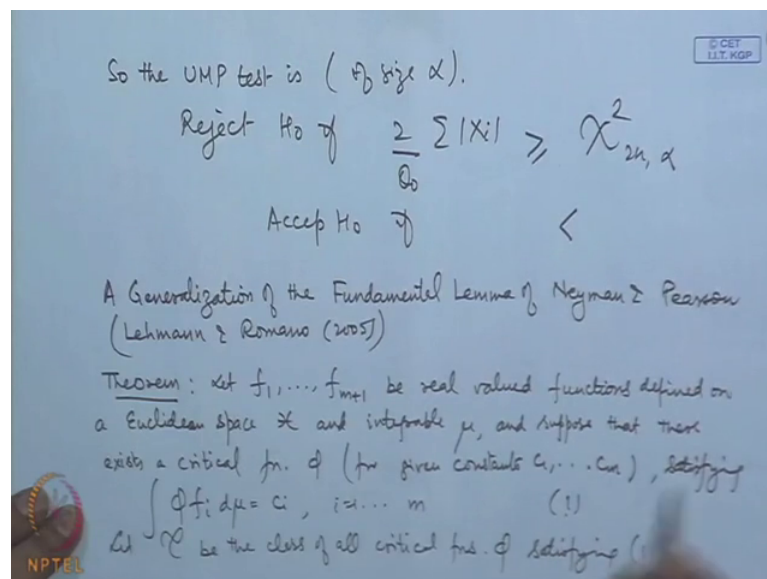 © CET
I.I.T. KGP
So the UMP test is ( of size α).
Reject Ho if 2/θ₀ Σ|Xi| ⩾ χ²₂ₙ, α
Accep Ho if <
A Generalization of the Fundamental Lemma of Neyman & Pearson
(Lehmann & Romano (2005))
Theorem : Let f₁, ..., fₘ₊₁ be real valued functions defined on
a Euclidean space 𝒳 and integrable μ, and suppose that there
exists a critical fn. φ (for given constants c₁, ... cₘ), satisfying
∫ φ fᵢ dμ = cᵢ , i=1... m (1)
Let 𝒞 be the class of all critical fns. φ satisfying (
NPTEL